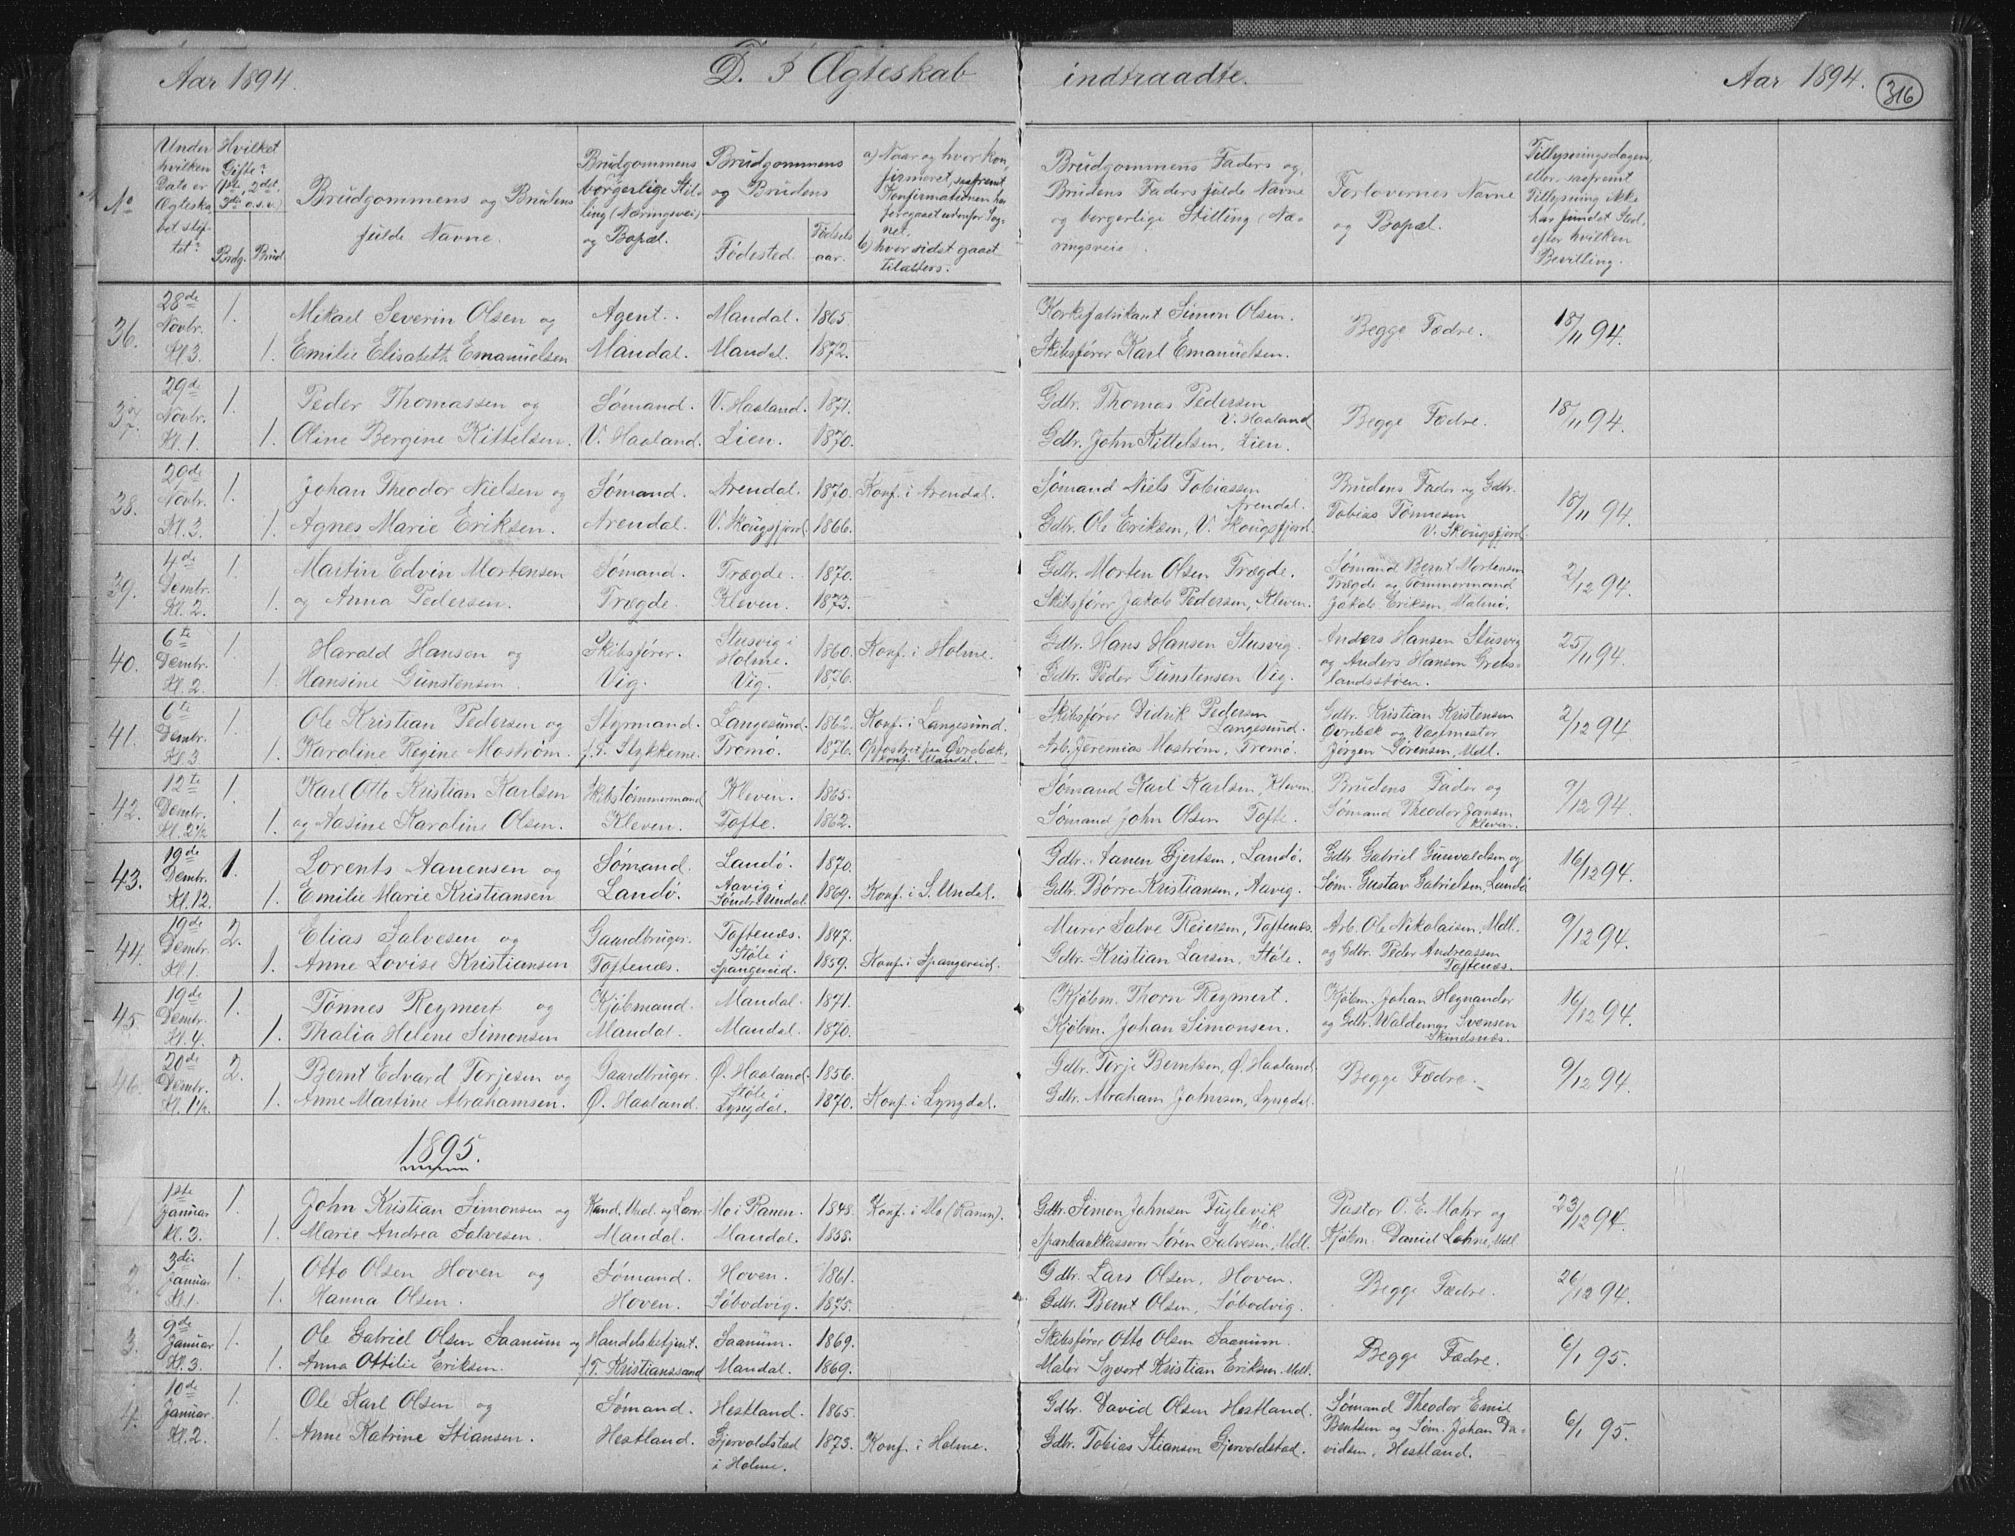 Aar 1894. D. I Ægteskab indtraadte. Aar 1894. 316
No
Under hvilken Dato er Ægteskabet stiftet?
Hvilket Gifte? (1ste, 2det, 3die o.s.v.)
Brdg. Brud
Brudgommens og Brudens fulde Navne.
Brudgommens borgerlige Stilling (Næringsvei) og Bopæl.
Brudgommens og Brudens
Fødested. Fødselsaar.
a) Naar og hvor konfirmeret, saafremt Konfirmationen har foregaaet udenfor Sognet.
b) hvor sidst gaaet tilalters.
Brudgommens Faders og Brudens Faders fulde Navne og borgerlige Stilling (Næringsveie)
Forlovernes Navne og Bopæl.
Tillysningsdagen, eller, saafremt Tillysning ikke har fundet Sted, efter hvilken Bevilling.
36. 28de Novbr. Kl 3. 1. Mikael Severin Olsen og Agent. Mandal. 1865. Korkefabrikant Simon Olsen. Begge Fædre. 18/11 94.
1. Emilie Elisabeth Emanuelsen Mandal. Mandal. 1872. Skibsfører Karl Emanuelsen.
37. 29de Novbr. Kl. 1. 1. Peder Thomassen og Sømand. V. Haaland. 1871. Gdbr. Thomas Pedersen V. Haaland Begge Fædre. 18/11 94.
1. Oline Bergine Kittelsen. V. Haaland. Lien. 1870. Gdbr. John Kittelsen, Lien.
38. 29de Novbr. Kl. 3. 1. Johan Theodor Nielsen og Sømand. Arendal. 1870. Konf. i Arendal. Sømand Niels Tobiassen Arendal. Brudens Fader og Gdbr. 18/11 94.
1. Agnes Marie Eriksen. Arendal. V. Skougsfjord. 1866. Gdbr. Ole Eriksen, V. Skougsfjord. Tobias Tønnesen V. Skougsfjord.
39. 4de Dembr. Kl. 2. 1. Martin Edvin Mortensen Sømand. Trægde. 1870. Gdbr. Morten Olsen Trægde. Sømand Bernt Mortensen 2/12 94.
1. og Anna Pedersen. Trægde. Kleven. 1873. Skibsfører Jakob Pedersen, Kleven. Trægde og Tømmermand Jakob Eriksen, Malmø.
40. 6te Dembr. Kl. 2. 1. Harald Hansen og Skibsfører. Stusvig i Holme. 1860. Konf. i Holme. Gdbr. Hans Hansen Stusvig. Anders Hansen Stusvig 25/11 94.
1. Hansine Gunstensen. Vig. Vig. 1876. Gdbr. Peder Gunstensen Vig. og Anders Hansen Grøslandsstøen.
41. 6te Dembr. Kl. 3 1. Ole Kristian Pedersen og Styrmand. Langesund. 1862. Konf. i Langesund. Skibsfører Didrik Pedersen Langesund. Gdbr. Kristian Kristensen 2/12 94
1. Karoline Regine Mostrøm. f. T. Stykkerne. Tromø. 1876. Opfostret paa Øvrebæk, konf. Mandal. Arb. Jeremias Mostrøm, Tromø. Øvrebæk og Vægtmester Jørgen Sørensen, Mdl.
42. 12te Dembr. Kl. 2 1/2 1. Karl Otto Kristian Karlsen Skibstømmermand Kleven. 1865. Sømand Karl Karlsen, Kleven Brudens Fader og 9/12 94.
1. og Aasine Karoline Olsen. Kleven. Tofte. 1862. Sømand John Olsen Tofte. Sømand Theodor Jansen Kleven.
43. 19de Dembr. Kl. 12. 1. Lorents Aanensen og Sømand. Landø. 1870. Gdbr. Aanen Gjertsen, Landø. Gdbr. Gabriel Gunvaldsen og 16/12 94.
1. Emilie Marie Kristiansen Landø. Aavig i Søndr. Undal 1869. Konf. i S. Undal. Gdbr. Børre Kristiansen, Aavig. Søm. Gustav Gabrielsen, Landø
44. 19de Dembr. Kl. 1. 2. Elias Salvesen og Gaardbruger. Toftenæs. 1847. Murer Salve Reiersen, Toftenæs. Arb. Ole Nikolaisen, Mdl. 9/12 94.
1. Anne Lovise Kristiansen Toftenæs. Støle i Spangereid. 1859. Konf. i Spangereid. Gdbr. Kristian Larsen, Støle. og Gdbr. Peder Andreassen Toftenæs.
45. 19de Dembr. Kl. 4. 1. Tønnes Reymert og Kjøbmand. Mandal. 1871. Kjøbm. Thorn Reymert. Kjøbm. Johan Heynander 16/12 94.
1. Thalia Helene Simonsen Mandal. Mandal. 1870. Kjøbm. Johan Simonsen. og Gdbr. Waldemar Svensen Skindsnæs.
46. 20de Dembr. Kl. 1 1/2. 2. Bernt Edvard Torjesen og Gaardbruger. Ø. Haaland. 1856. Gdbr. Torje Berntsen, Ø. Haaland Begge Fædre. 9/12 94.
1. Anne Martine Abrahamsen. Ø. Haaland. Støle i Lyngdal. 1870. Konf. i Lyngdal. Gdbr. Abraham Johnsen, Lyngdal.
1895.
1 1ste Januar Kl. 3. 1. John Kristian Simonsen og Kand. theol. og Lærer Mo i Ranen. 1848. Konf. i Mo (Ranen). Gdbr. Simon Johnsen Fuglevik Mo. Pastor O. E. Mohr og 23/12 94.
1. Marie Andrea Salvesen. Mandal. Mandal. 1855. Sparebankkasserer Søren Salvesen, Mdl. Kjøbm. Daniel Lohne, Mdl
2. 3die Januar Kl. 1. 1. Otto Olsen Hoven og Sømand. Hoven. 1861. Gdbr. Lars Olsen, Hoven. Begge Fædre. 26/12 94.
1. Hanna Olsen. Hoven. Søbodvig. 1875. Gdbr. Bernt Olsen, Søbodvig.
3. 9de Januar Kl. 3. 1. Ole Gabriel Olsen Saanum og Handelsbetjent. Saanum. 1869. Skibsfører Otto Olsen Saanum. Begge Fædre. 6/1 95.
1. Anna Ottilie Eriksen. f. T. Kristianssand Mandal. 1869. Maler Syvert Kristian Eriksen. Mdl.
4. 10de Januar. Kl. 2. 1. Ole Karl Olsen og Sømand. Hestland. 1865. Gdbr. David Olsen Hestland. Sømand Theodor Emil 6/1 95.
1. Anne Katrine Stiansen. Hestland. Gjervoldstad i Holme. 1873. Konf. i Holme. Gdbr. Tobias Stiansen Gjervoldstad. Bentsen og Søm. Johan Davidsen, Hestland.